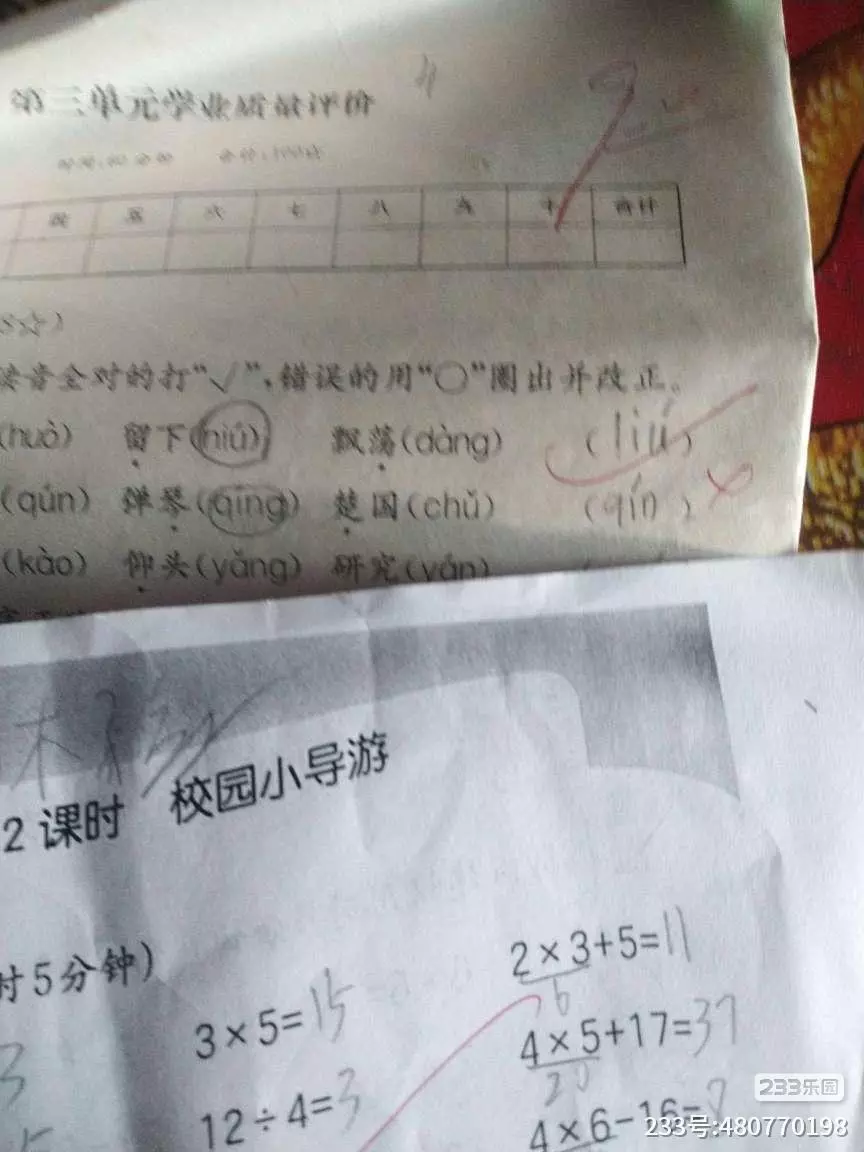 第三单元学业质量评价
时间:60分钟 分值:100分
四 五 六 七 八 九 十 合计
读音全对的打“√”,错误的用“○”圈出并改正。
(huò) 留下(niú) 飘荡(dàng) (liú)
(qún) 弹琴(qíng) 楚国(chǔ) (qín)
(kào) 仰头(yǎng) 研究(yán)
2课时 校园小导游
时5分钟)
2×3+5=11
6
3×5=15
4×5+17=37
20
3
12÷4=3
4×6-16=8
233乐园
233号:480770198